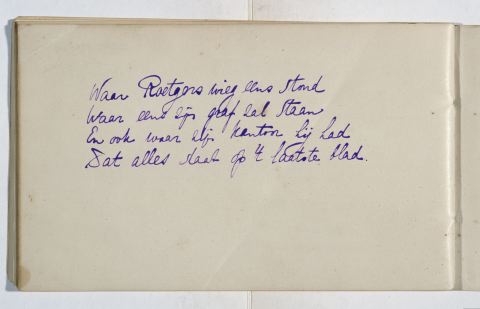 Waar Roetgers wieg eens stond
Waar eens zijn graf zal staan
En ook waar zijn kantoor hij had
Dat alles staat op 't laatste blad.